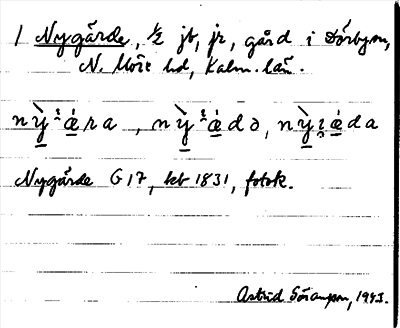 1 Nygärde, 1/2 jb, jr, gård i Dörbyn,
N. Möre hd, Kalm. län.
nỳi̯æ̀ra, nỳi̯æ̀də, nỳi̯æ̀da
Nygärde G 17, kb 1831, fotok.
Astrid Söransson, 1943.